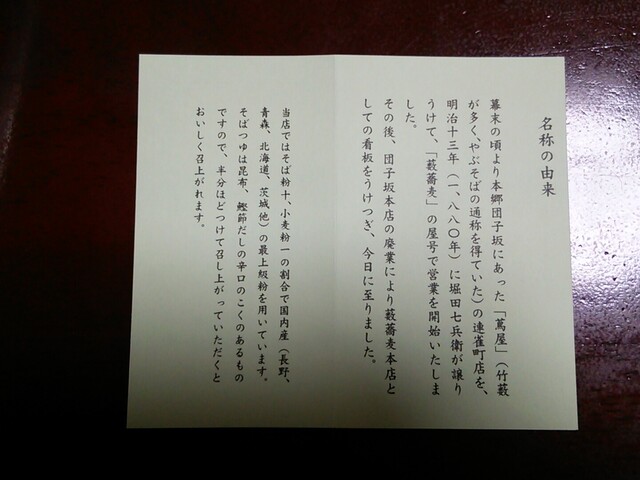 名称の由来
幕末の頃より本郷団子坂にあった「蔦屋」（竹藪
が多く、やぶそばの通称を得ていた）の連雀町店を、
明治十三年（一、八八〇年）に堀田七兵衛が譲り
うけて、「藪蕎麦」の屋号で営業を開始いたしま
した。
その後、団子坂本店の廃業により藪蕎麦本店と
しての看板をうけつぎ、今日に至りました。
当店ではそば粉十、小麦粉一の割合で国内産（長野、
青森、北海道、茨城他）の最上級粉を用いています。
そばつゆは昆布、鰹節だしの辛口のこくのあるもの
ですので、半分ほどつけて召し上がっていただくと
おいしく召上がれます。